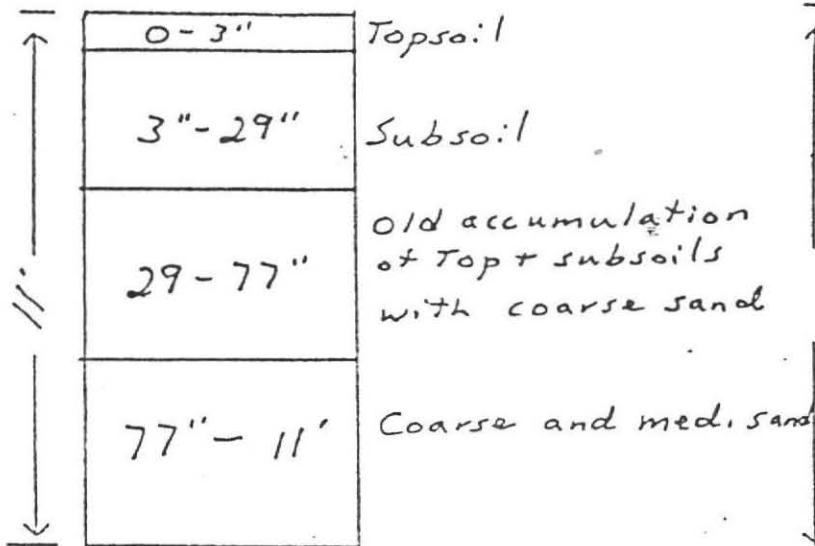 0-3" Topsoil
3"-29" Subsoil
Old accumulation
of Top + subsoils
29-77"
with coarse sand
11'
77"- 11' Coarse and med. sand